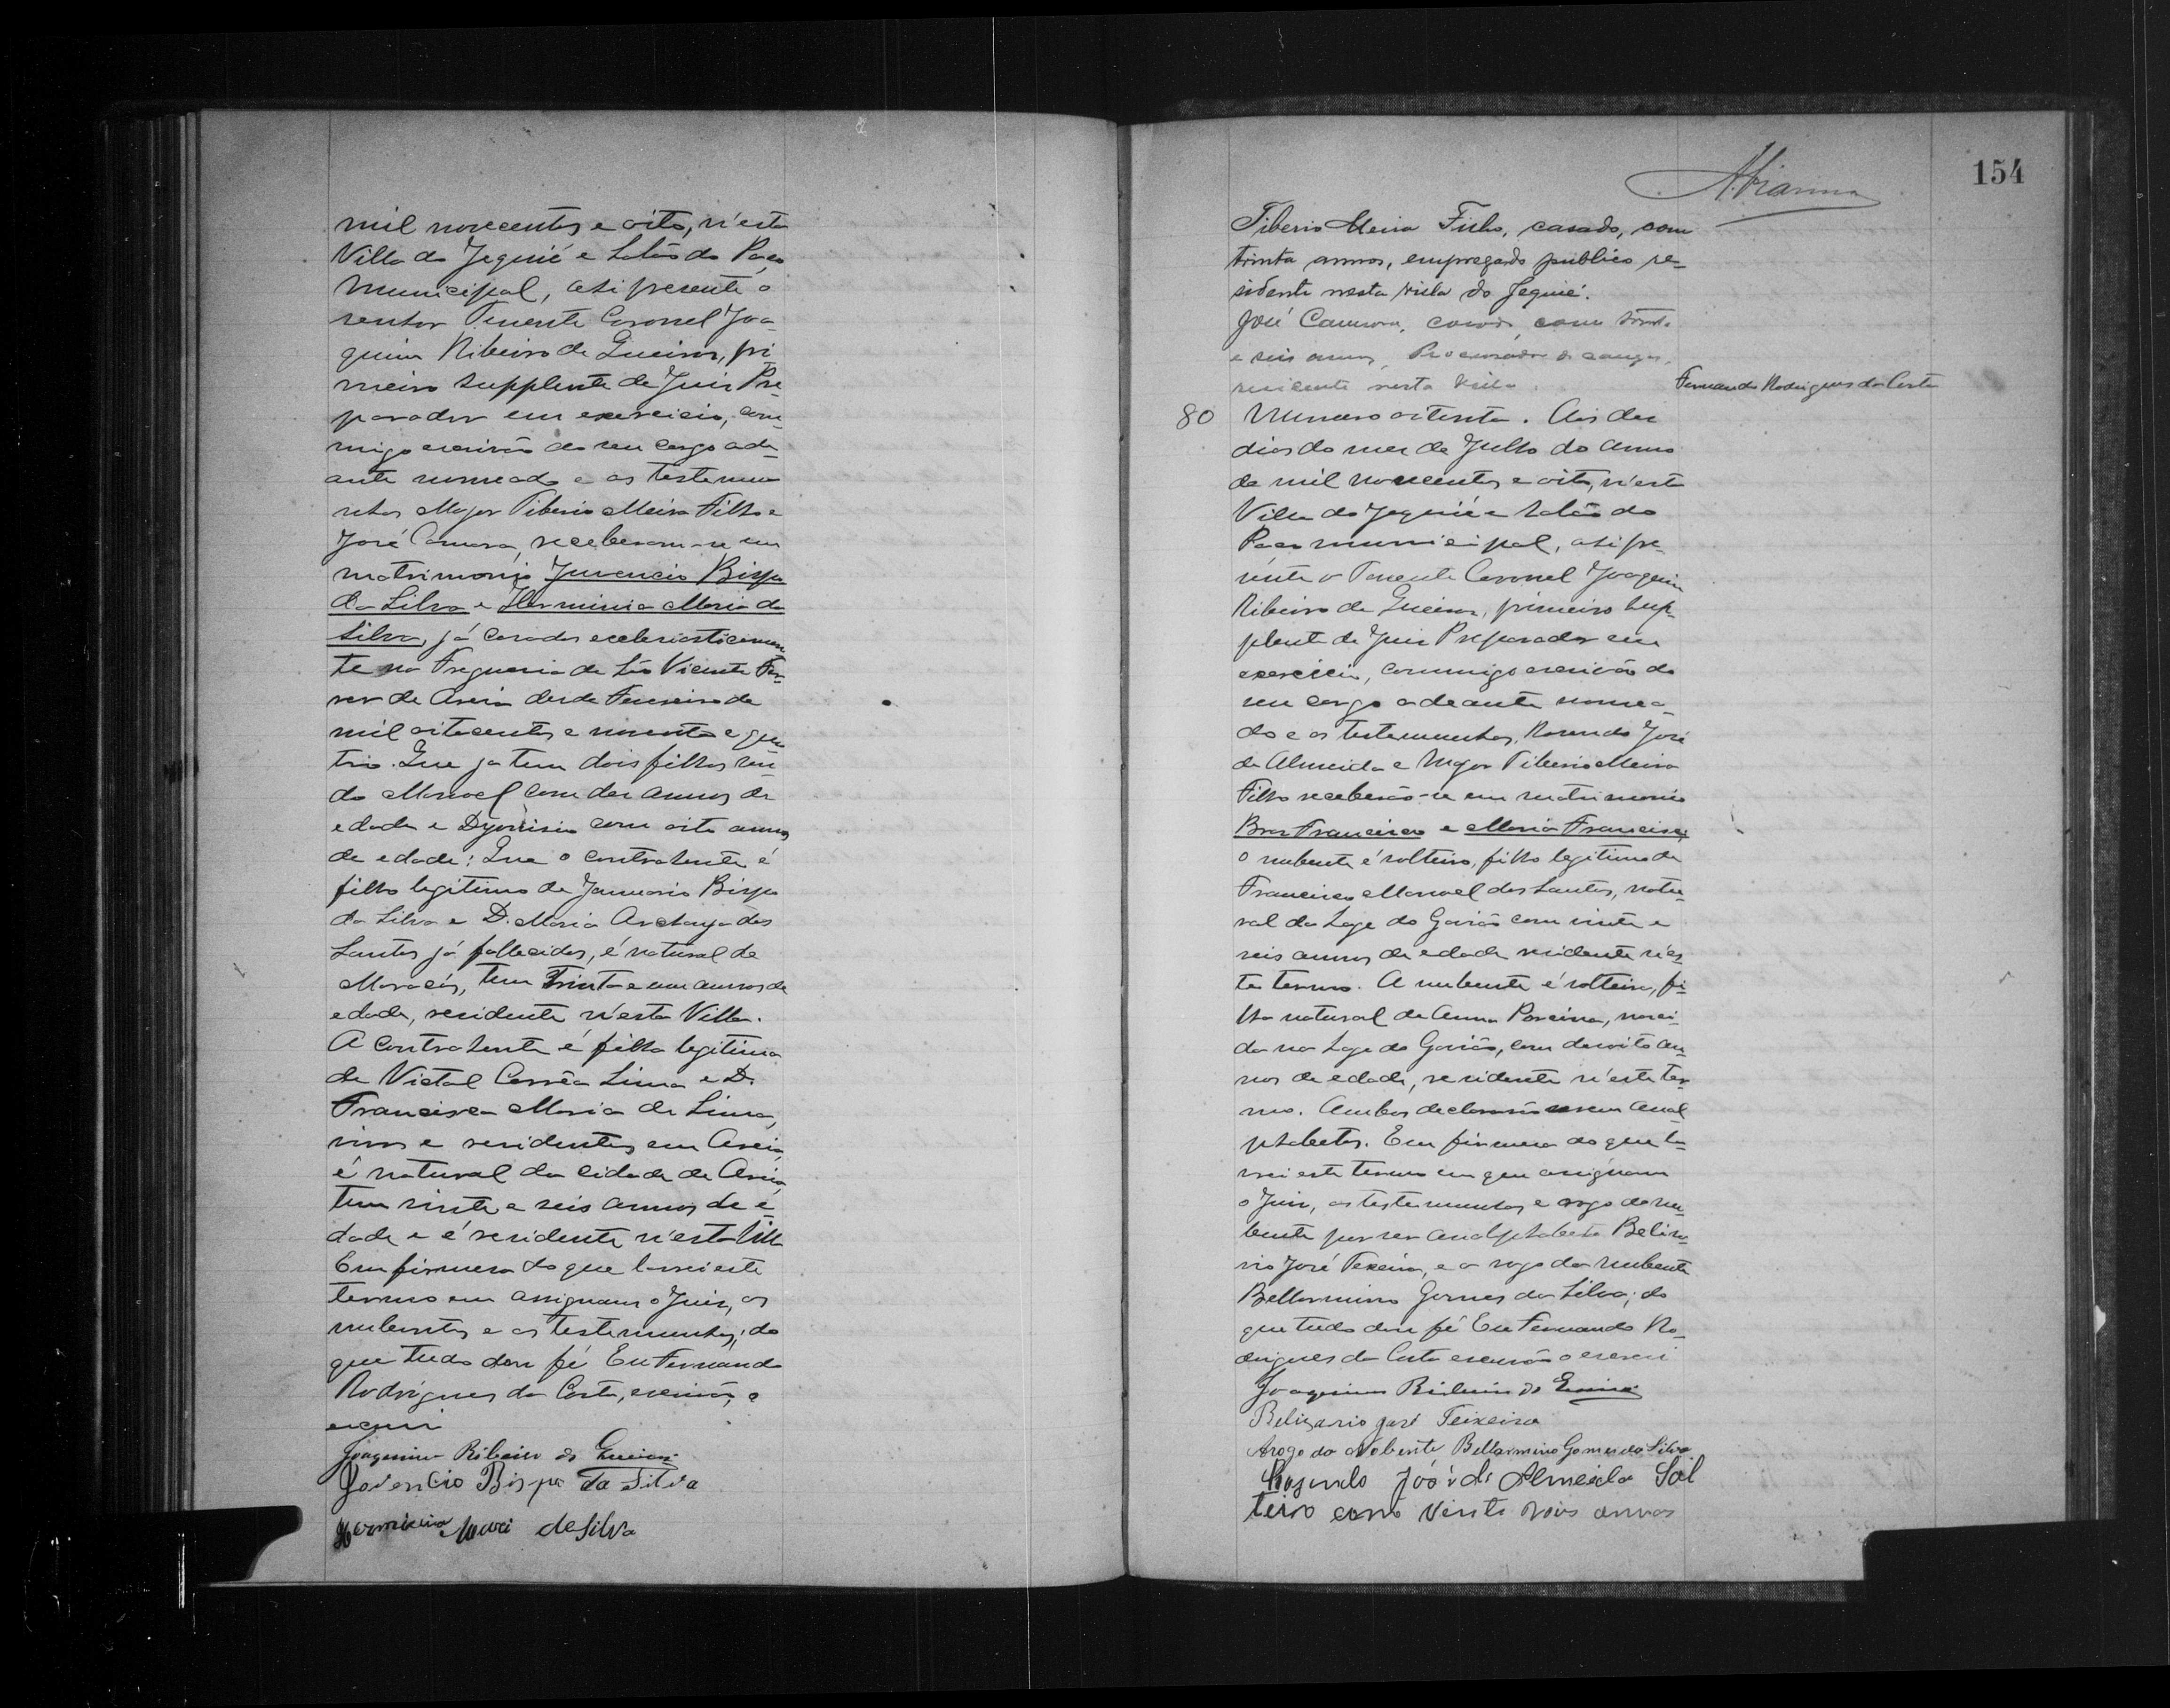 mil novecentos e oito, n'esta
Villa do Jequié e Salão do Paço
Municipal, ahi presente o
senhor Tenente Coronel Joa-
quim Ribeiro de Queiroz, pri
meiro supplente de Juiz Pre
parador em exercicio, com
migo escrivão do seu cargo adi
ante nomeado e as testemu
nhas Major Tiberio Meira Filho e
José Camara, receberam-se em
matrimonio Juvencio Bispo
da Silva e Herminia Maria da
Silva, já casados ecclesiasticamen
te na Freguesia de São Vicente Fer-
rer de Areia desde Fevereiro de
mil oitocentos e noventa e qua
tro. Que ja tem dois filhos sen-
do Manoel com dez annos de
edade e Dyonisio com oito annos
de edade: Que o contrahente é
filho legitimo de Januario Bispo
da Silva e D. Maria Archanja dos
Santos já fallecidos, é natural de
Maracás, tem trinta e um annos de
edade, residente n'esta Villa.
A contrahente é filha legitima
de Victal Corrêa Lima e D.
Francisca Maria de Lima,
vivos e residentes em Areia,
é natural da cidade de Areia,
tem vinte e seis annos de e-
dade e é residente n'esta Villa
Em firmeza do que lavrei este
termo em assignam o Juiz, os
nubentes e as testemunhas; do
que tudo dou fé Eu Fernando
Rodrigues da Costa, escrivão, o
escrevi
Joaquim Ribeiro de Queiroz
Jovencio Bispo da Silva
Herminia Maria de Silva
154
A. Vianna
Tiberio Meira Filho, casado, com
trinta annos, empregado publico re-
sidente nesta Villa do Jequié.
José Camara, casado com trinta
e seis annos, Procurador de causas,
residente nesta Villa.
Fernando Rodrigues da Costa
80 Numero oitenta. Aos dez
dias do mez de Julho do anno
de mil novecentos e oito, n'esta
Villa do Jequié e Salão do
Paço municipal, ahi pre-
sente o Tenente Coronel Joaquim
Ribeiro de Queiroz, primeiro sup-
plente de Juiz Preparador em
exercicio, commigo escrivão do
seu cargo adeante nomea-
do e as testemunhas, Rosendo José
de Almeida e Major Tiberio Meira
Filho receberão-se em matrimonio
Braz Francisco e Maria Francisca,
o nubente é solteiro, filho legitimo de
Francisco Manoel dos Santos, natu-
ral da Lage do Gavião com vinte e
seis annos de edade residente n'es
te termo. A nubente é solteira, fi-
lha natural de Anna Porcina, nasci-
da na Lage do Gavião, com dezoito an-
nos de edade, residente n'este ter-
mo. Ambos declararão serem anal
phabetos. Em firmeza do que la-
vrei este termo em que assignam
o Juiz, as testemunhas e arogo do nu-
bente por ser analphabeto Beliza-
rio José Texeira, e a rogo da nubente
Bellarmino Gomes da Silva; do
que tudo dou fé Eu Fernando Ro-
drigues da Costa escrivão o escrevi
Joaquim Ribeiro de Queiroz
Belizario José Teixeira
Arogo da Nobente Bellarmino Gomes da Silva
Rosendo José de Almeida Sol
teiro com vinte dois annos